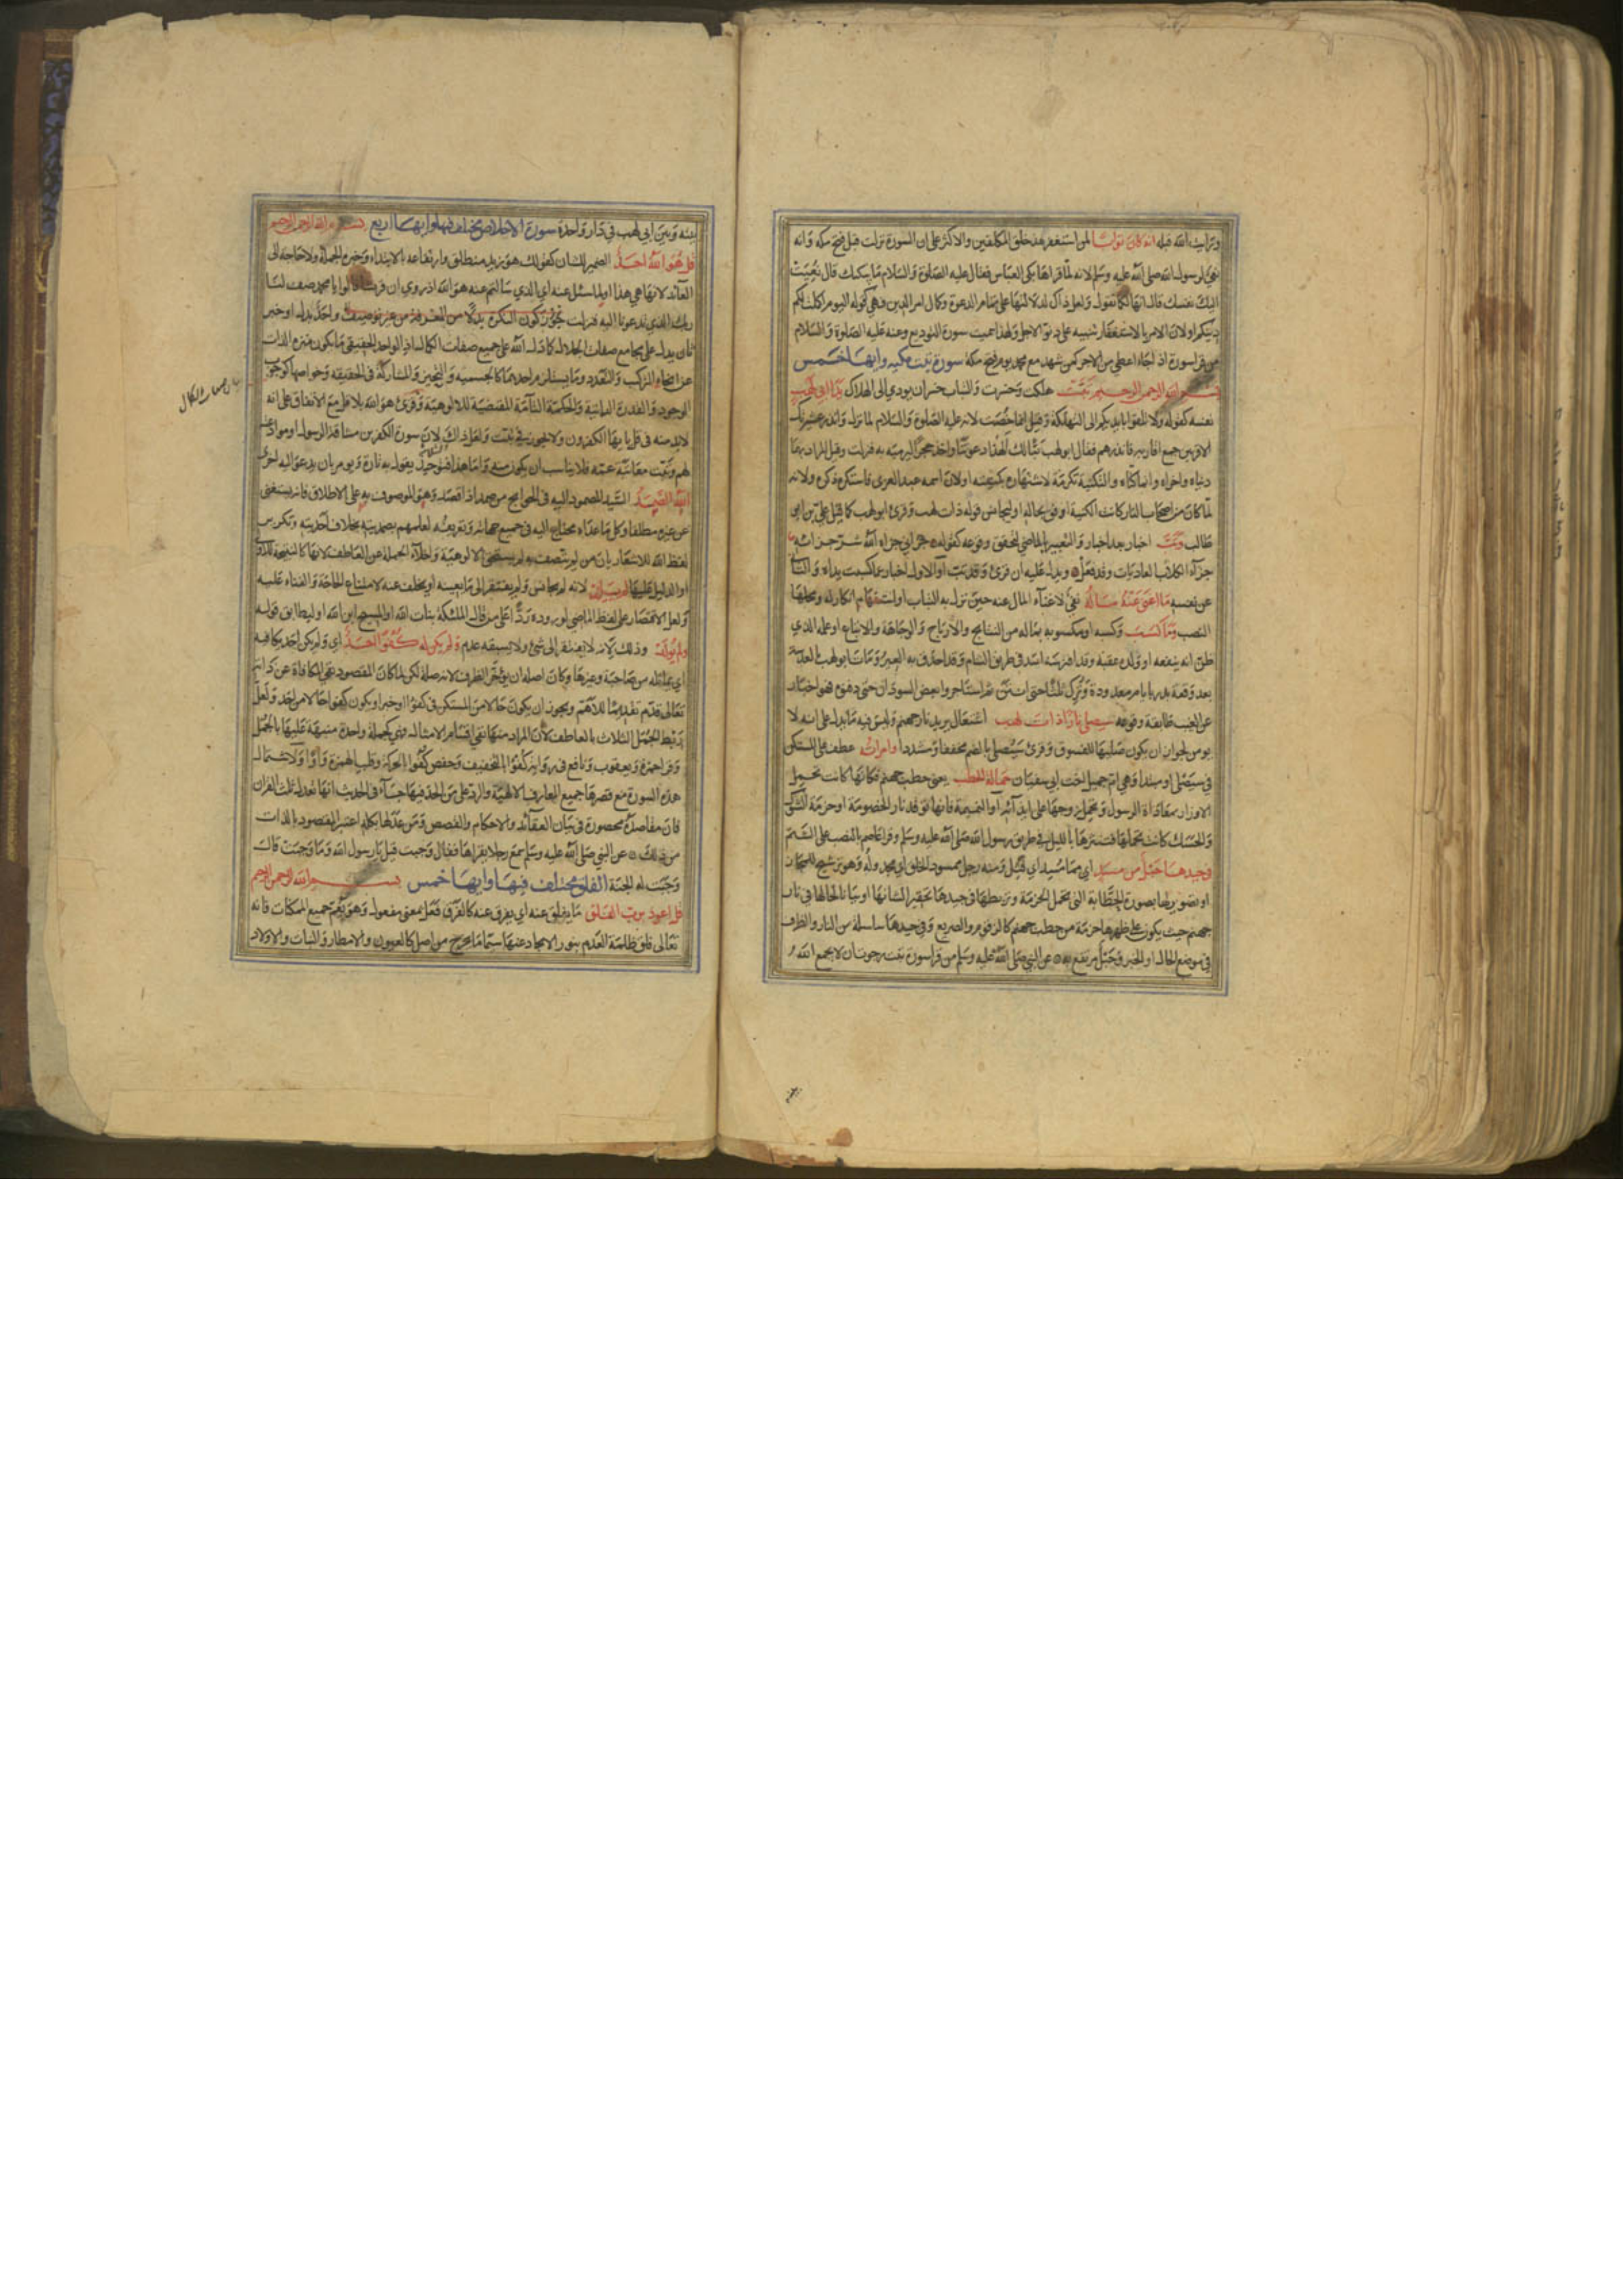 ومرايت الله قبله انه كان توابا لمن استغفر مذ خلق المكلفين والاكثر على ان السورة نزلت قبل فتح مكة وانه
نعي لرسول الله صلى الله عليه وسلم لانه لما قراها بكى العباس فقال عليه الصلوة والسلام ما يبكيك قال نعيت
اليك نفسك قال انها لكما تقول ولعل ذاك لدلالتها على تمام الدعوة وكمال امر الدين وهي كقوله اليوم اكملت لكم
دينكم او لان الامر بالاستغفار تنبيه على دنو الاجل ولهذا سميت سورة التوديع وعنه عليه الصلوة والسلام
من قرا سورة اذا جاء اعطي من الاجر كمن شهد مع محمد يوم فتح مكة سورة تبت مكية وايها خمس
بسم الله الرحمن الرحيم تبت هلكت وخسرت والتباب خسران يودي الى الهلاك يدا ابي لهب
نفسه كقوله ولا تلقوا بايديكم الى التهلكة وقيل انما خصتا لانه عليه الصلوة والسلام لما نزل وانذر عشيرتك
الاقربين جمع اقاربه فانذرهم فقال ابو لهب تبا لك الهذا دعوتنا واخذ حجرا ليرميه به فنزلت وقيل المراد بهما
دنياه واخراه وانما كناه والتكنية تكرمة لاشتهاره بكنيته او لان اسمه عبد العزى فاستكره ذكره ولانه
لما كان من اصحاب النار كانت الكنية اوفق بحاله او ليجانس قوله ذات لهب وقرئ ابو لهب كما قيل علي بن ابو
طالب وتب اخبار بعد اخبار والتعبير بالماضي لتحقق وقوعه كقوله جزاني جزاه الله شر جزائه
جزاء الكلاب العاديات وقد فعل ويدل عليه ان قرئ وقد تب او الاول اخبار عما كسبت يداه والثاني
عن نفسه ما اغنى عنه ماله نفي لاغناء المال عنه حين نزل به التباب او استفهام انكار له ومحلها
النصب وما كسب وكسبه او مكسوبه بماله من النتايج والارباح والوجاهة والاتباع او عمله الذي
ظن انه ينفعه او ولده عقبه وقد افترسه اسد في طريق الشام وقد احدق به العير ومات ابو لهب بالعدسة
بعد وقعة بدر بايام معدودة وترك ثلثا حتى انتن ثم استاجروا بعض السودان حتى دفنوه فهو اخبار
عن الغيب طابقه وقوعه سيصلى نارا ذات لهب اشتعال يريد نار جهنم وليس فيه ما يدل على انه لا
يومن لجواز ان يكون صليها للفسوق وقرئ سيصلى بالضم مخففا ومشددا وامراته عطف على المستكن
في سيصلى او مبتدا وهي ام جميل اخت ابي سفيان حمالة الحطب يعني حطب جهنم فكانها كانت تحمل
الاوزار بمعاداة الرسول وتحمل زوجها على ايذائه او النميمة فانها توقد نار الخصومة او حزمة الشوك
والحسك كانت تحملها فتنثرها بالليل في طريق رسول الله صلى الله عليه وسلم وقرا عاصم بالنصب على الشتم
في جيدها حبل من مسد اي مما مسد اي فتل ومنه رجل ممسود الخلق اي مجدوله وهو ترشيح للمجاز
او تصوير لها بصورة الحطابة التي تحمل الحزمة وتربطها في جيدها تحقيرا لشانها او بيانا لحالها في نار
جهنم حيث يكون على ظهرها حزمة من حطب جهنم كالزقوم والضريع وفي جيدها سلسلة من النار والظرف
في موضع الحال او الخبر وحبل مرتفع به عن النبي صلى الله عليه وسلم من قرا سورة تبت رجوت ان لا يجمع الله
بينه وبين ابي لهب في دار واحدة سورة الاخلاص مختلف فيها وايها اربع بسم الله الرحمن الرحيم
قل هو الله احد الضمير للشان كقولك هو زيد منطلق وارتفاعه بالابتداء وخبره الجملة ولا حاجة الى
العائد لانها هي هذا او لما سئل عنه اي الذي سالتم عنه هو الله اذ روي ان قريشا قالوا يا محمد صف لنا
ربك الذي تدعونا اليه فنزلت تجوز كون النكرة بدلا من المعرفة من غير توصيف واحد بدل او خبر
ثان يدل على مجامع صفات الجلال كما دل الله على جميع صفات الكمال اذ الواحد الحقيقي ما يكون منزه الذات
عن انحاء التركيب والتعدد وما يستلزم احدهما كالجسمية والتحيز والمشاركة في الحقيقة وخواصها كوجوب
الوجود والقدرة الذاتية والحكمة التامة المقتضية للالوهية وقرئ هو الله بلا قل مع الاتفاق على انه
لابد منه في قل يا يها الكفرون ولا يجوز في تبت ولعل ذاك لان سورة الكفرين مشاقة الرسول او موادعته
لهم وتبت معاتبة عمه فلا يناسب ان يكون منه واما هذا فتوحيد يقول به تارة ويومر بان يدعو اليه اخرى
الله الصمد السيد المصمود اليه في الحوايج من صمد اذا قصد وهو الموصوف به على الاطلاق فانه يستغني
عن غيره مطلقا وكل ما عداه محتاج اليه في جميع جهاته وتعريفه لعلمهم بصمديته بخلاف احديته وتكرير
لفظ الله للاشعار بان من لم يتصف به لم يستحق الالوهية واخلاء الجملة عن العاطف لانها كالنتيجة للاولى
او الدليل عليها لم يلد لانه لم يجانس ولم يفتقر الى ما يعينه او يخلف عنه لامتناع الحاجة والفناء عليه
ولعل الاقتصار على لفظ الماضي لوروده ردا على من قال الملئكة بنات الله او المسيح ابن الله او ليطابق قوله
ولم يولد وذلك لانه لا يفتقر الى شئ ولا يسبقه عدم ولم يكن له كفوا احد اي ولم يكن احد يكافيه
اي يماثله من صاحبة وغيرها وكان اصله ان يؤخر الظرف لانه صلة لكن لما كان المقصود نفي المكافاة عن ذاته
تعالى قدم تقديما للاهم ويجوز ان يكون حالا من المستكن في كفوا او خبرا ويكون كفوا حالا من احد ولعل
ربط الجمل الثلاث بالعاطف لان المراد منها نفي اقسام الامثال فهي كجملة واحدة منبهة عليها بالجمل
وقرا حمزة ويعقوب ونافع في رواية كفوا بالتخفيف وحفص كفوا بالحركة وقلب الهمزة واوا ولاشتمال
هذه السورة مع قصرها جميع المعارف الالهية والرد على من الحد فيها جاء في الحديث انها تعدل ثلث القران
فان مقاصده محصورة في بيان العقائد والاحكام والقصص ومن عدلها بكله اعتبر المقصود بالذات
من ذلك عن النبي صلى الله عليه وسلم سمع رجلا يقراها فقال وجبت قيل يا رسول الله وما وجبت قال
وجبت له الجنة الفلق مختلف فيها وايها خمس بسم الله الرحمن الرحيم
قل اعوذ برب الفلق ما يفلق عنه اي يفرق عنه كالفرق فعل بمعنى مفعول وهو يعم جميع الممكنات فانه
تعالى فلق ظلمة العدم بنور الايجاد عنها سيما ما يخرج من اصل كالعيون والامطار والنبات والاولاد